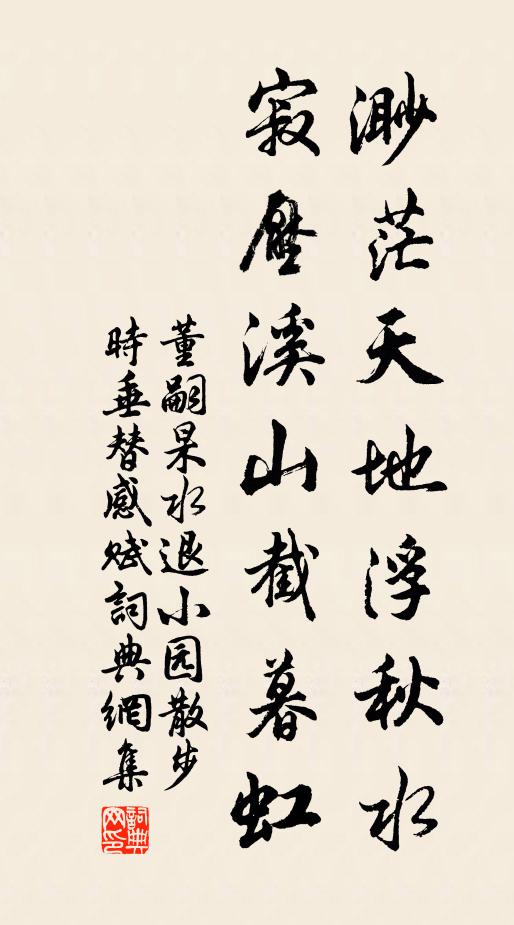 渺茫天地浮秋水
寂壓溪山截暮虹
董嗣杲水退小园散步
時垂替感赋詞典網集
詞典网印